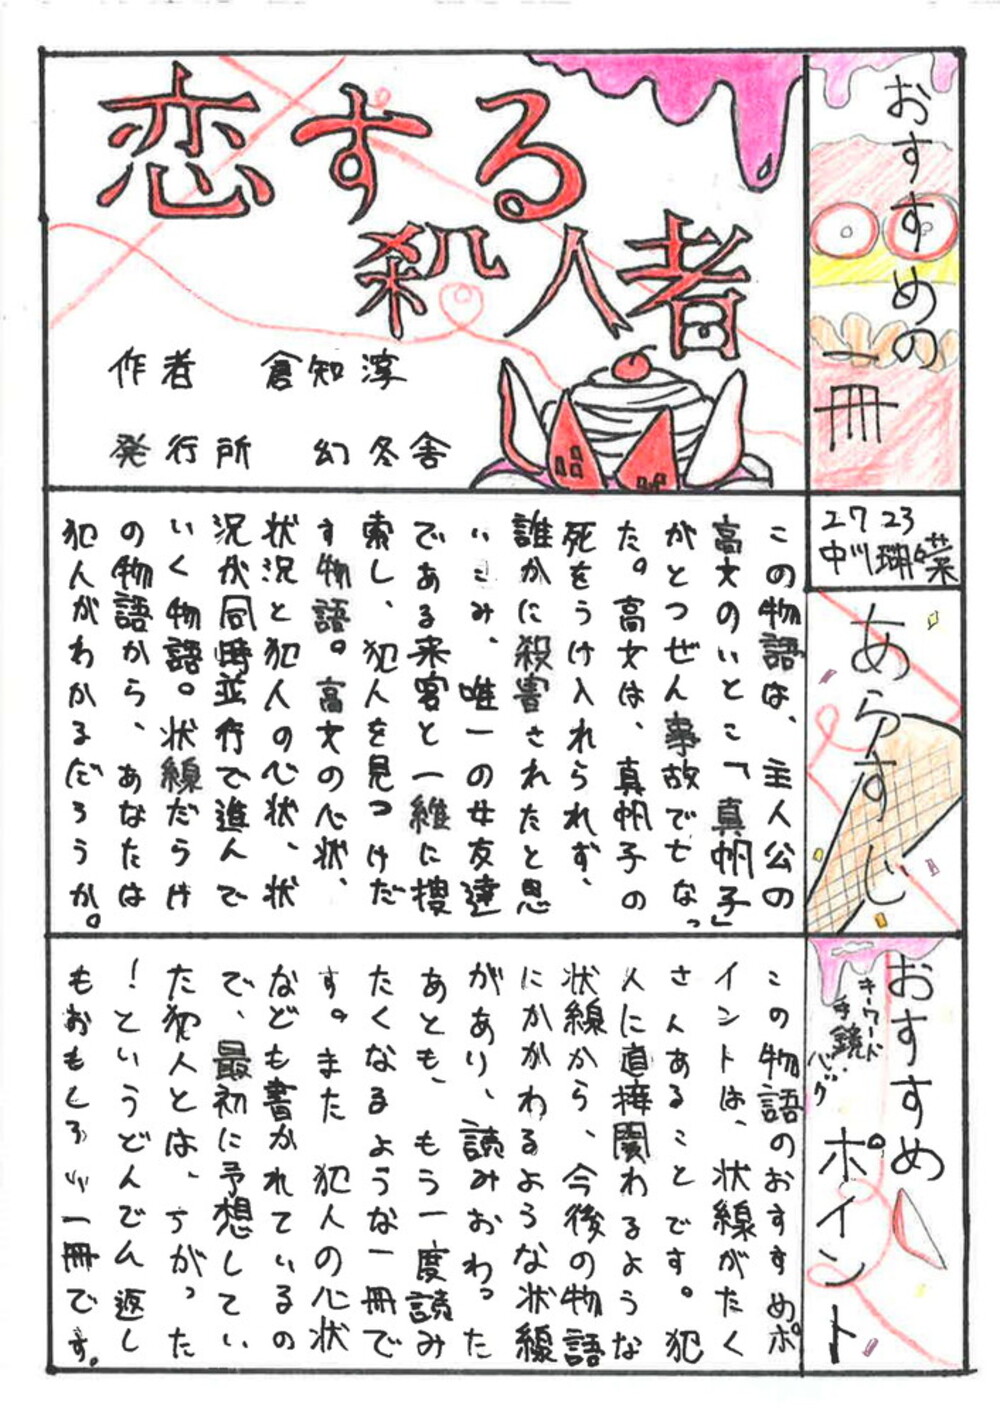 おすすめの一冊
恋する
殺人者
作者 倉知淳
発行所 幻冬舎
2723
中川瑚
あらすじ
この物語は、主人公の
高文のいとこ「真帆子」
がとつぜん事故で亡なっ
た。高文は、真帆子の
死をうけ入れられず、
誰かに殺害されたと思
いこみ、唯一の女友達
である来客と一緒に捜
索し、犯人を見つけだ
す物語。高文の心状、
状況と犯人の心状、状
況が同時並行で進んで
いく物語。状線だらけ
の物語から、あなたは
犯人がわかるだろうか。
おすすめポイント
キーワード
手鏡・バグ
この物語のおすすめポ
イントは、状線がたく
さんあることです。犯
人に直接関わるような
状線から、今後の物語
にかかわるような状線
があり、読みおわった
あとも、もう一度読み
たくなるような一冊で
す。また犯人の心状
なども書かれているの
で、最初に予想してい
た犯人とは、ちがった
！というどんでん返し
もおもしろい一冊です。